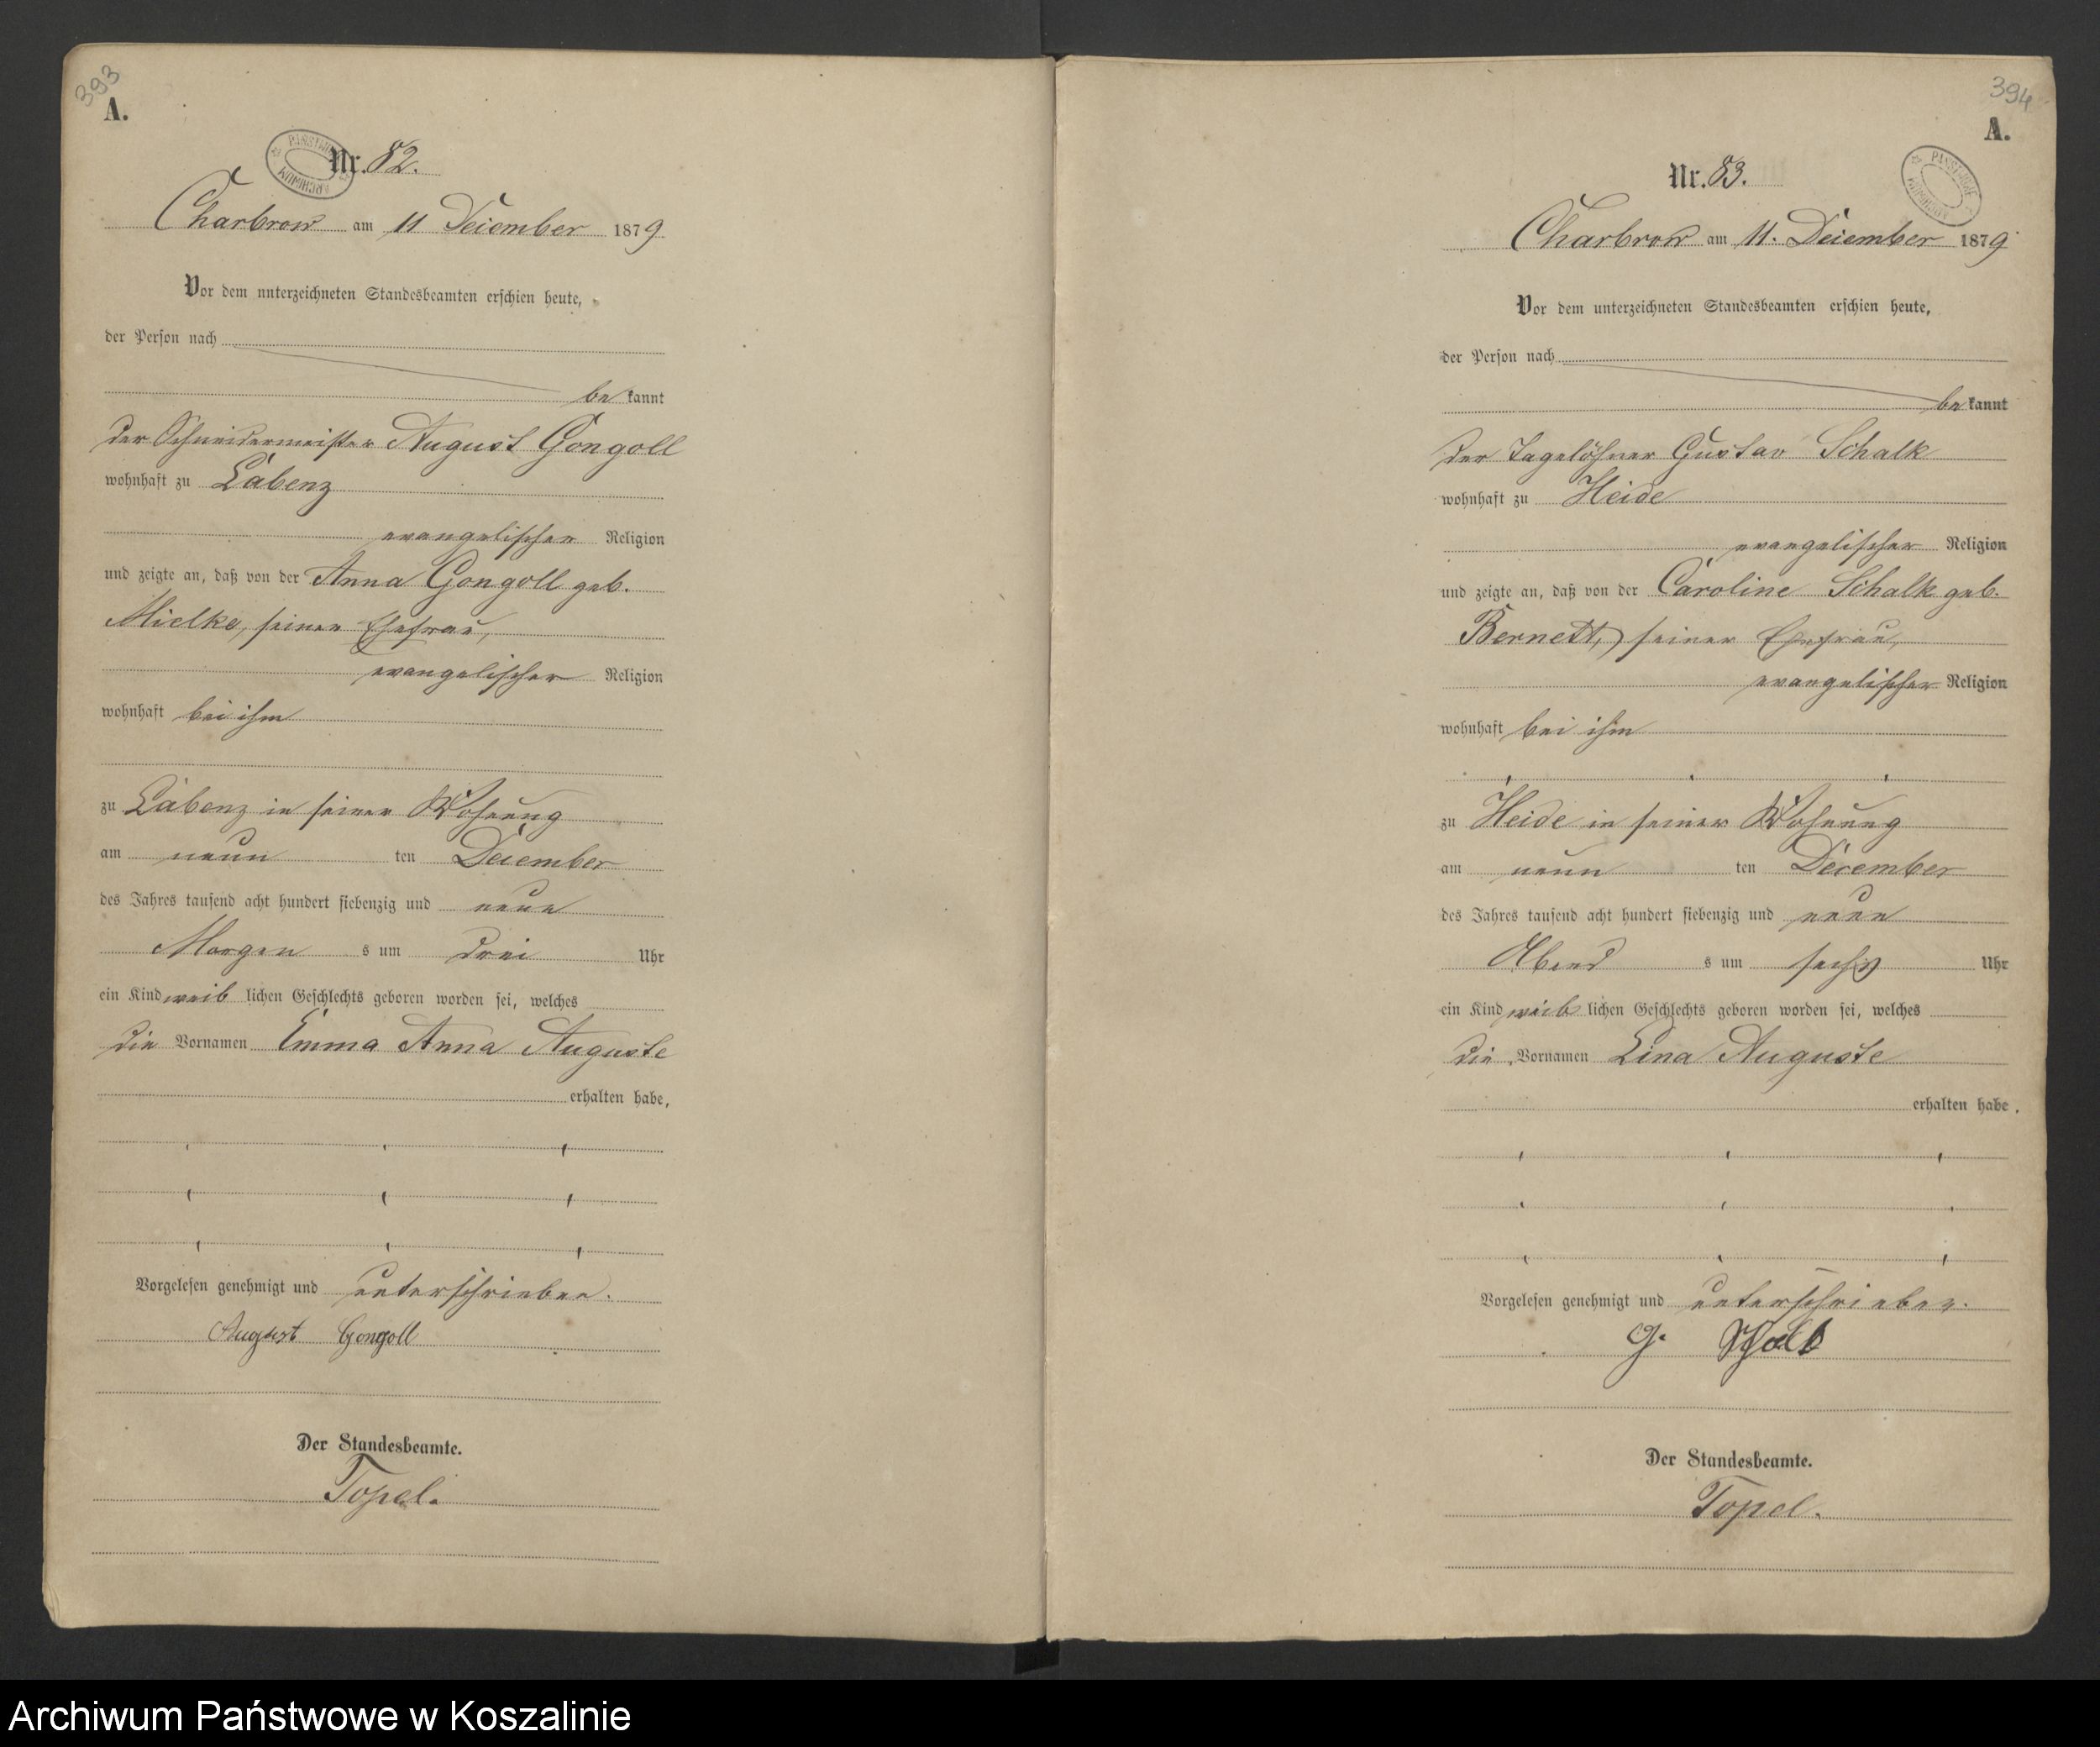 393
A.
Nr. 82.
Charbrow am 11 December 1879
Vor dem unterzeichneten Standesbeamten erschien heute,
der Person nach
bekannt
der Schneidermeister August Gongoll
wohnhaft zu Labenz
evangelischer Religion
und zeigte an, daß von der Anna Gongoll geb.
Mielke, seiner Ehefrau,
evangelischer Religion
wohnhaft bei ihm
zu Labenz in seiner Wohnung
am neun ten December
des Jahres tausend acht hundert siebenzig und neun
Morgen s um drei Uhr
ein Kind weib lichen Geschlechts geboren worden sei, welches
die Vornamen Emma Anna Auguste
erhalten habe,
Vorgelesen genehmigt und unterschrieben.
August Gongoll
Der Standesbeamte.
Topel.
394
A.
PAŃSTWOWE ARCHIWUM
Nr. 83.
Charbrow am 11. December 1879
Vor dem unterzeichneten Standesbeamten erschien heute,
der Person nach
bekannt
der Tagelöhner Gustav Schalk
wohnhaft zu Heide
evangelischer Religion
und zeigte an, daß von der Caroline Schalk geb.
Bernett, seiner Ehefrau,
evangelischer Religion
wohnhaft bei ihm
zu Heide in seiner Wohnung
am neun ten December
des Jahres tausend acht hundert siebenzig und neun
Abend s um sechs Uhr
ein Kind weib lichen Geschlechts geboren worden sei, welches
die Vornamen Lina Auguste
erhalten habe.
Vorgelesen genehmigt und unterschrieben.
G.
Der Standesbeamte.
Topel.
Archiwum Państwowe w Koszalinie